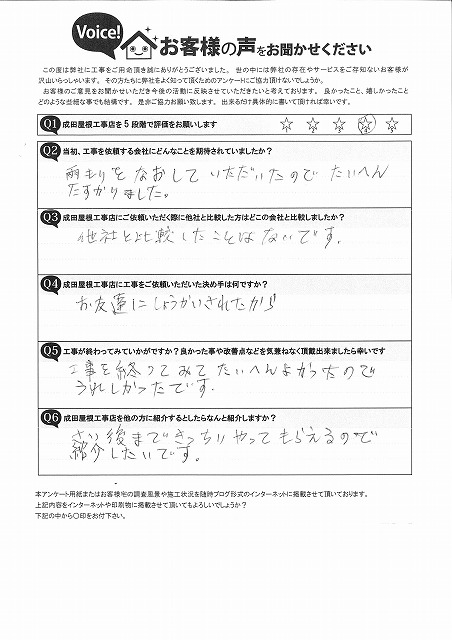 Voice!
お客様の声をお聞かせください
この度は弊社に工事をご用命頂き誠にありがとうございました。 世の中には弊社の存在やサービスをご存知ないお客様が
沢山いらっしゃいます。 その方たちに弊社をよく知って頂くためのアンケートにご協力頂けないでしょうか。
お客様のご意見をお聞かせいただき今後の活動に反映させていただきたいと考えております。 良かったこと、嬉しかったこと
どのような些細な事でも結構です。 是非ご協力お願い致します。 出来るだけ具体的に書いて頂ければ幸いです。
Q1 成田屋根工事店を5段階で評価をお願いします ☆ ☆ ☆ ☆ ☆
Q2 当初、工事を依頼する会社にどんなことを期待されていましたか?
雨もりをなおしていただいたのでたいへん
たすかりました。
Q3 成田屋根工事店にご依頼いただく際に他社と比較した方はどこの会社と比較しましたか?
他社と比較したことはないです.
Q4 成田屋根工事店に工事をご依頼いただいた決め手は何ですか?
お友達にしょうかいされたから
Q5 工事が終わってみていかがですか?良かった事や改善点などを気兼ねなく頂戴出来ましたら幸いです
工事を終ってみてたいへんよかったので
うれしかったです.
Q6 成田屋根工事店を他の方に紹介するとしたらなんと紹介しますか?
さい後まできっちりやってもらえるので
紹介したいです。
本アンケート用紙またはお客様宅の調査風景や施工状況を随時ブログ形式のインターネットに掲載させて頂いております。
上記内容をインターネットや印刷物に掲載させて頂いてもよろしいでしょうか?
下記の中から〇印をお付下さい。